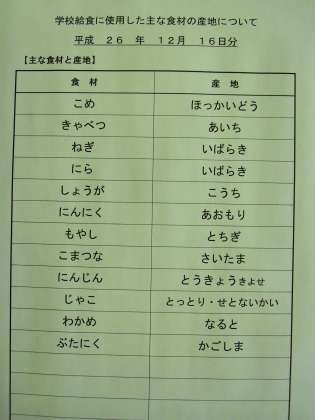 学校給食に使用した主な食材の産地について
平成 26 年 12月 16日分
【主な食材と産地】
食 材 産 地
こめ ほっかいどう
きゃべつ あいち
ねぎ いばらき
にら いばらき
しょうが こうち
にんにく あおもり
もやし とちぎ
こまつな さいたま
にんじん とうきょうきよせ
じゃこ とっとり・せとないかい
わかめ なると
ぶたにく かごしま